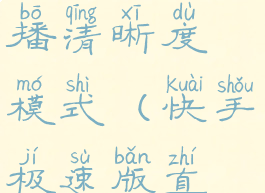 bō qīng xī dù
播清晰度
mó shì kuài shǒu
模式（快手
jí sù bǎn zhí
极速版直